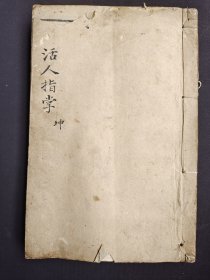 活人指掌
坤